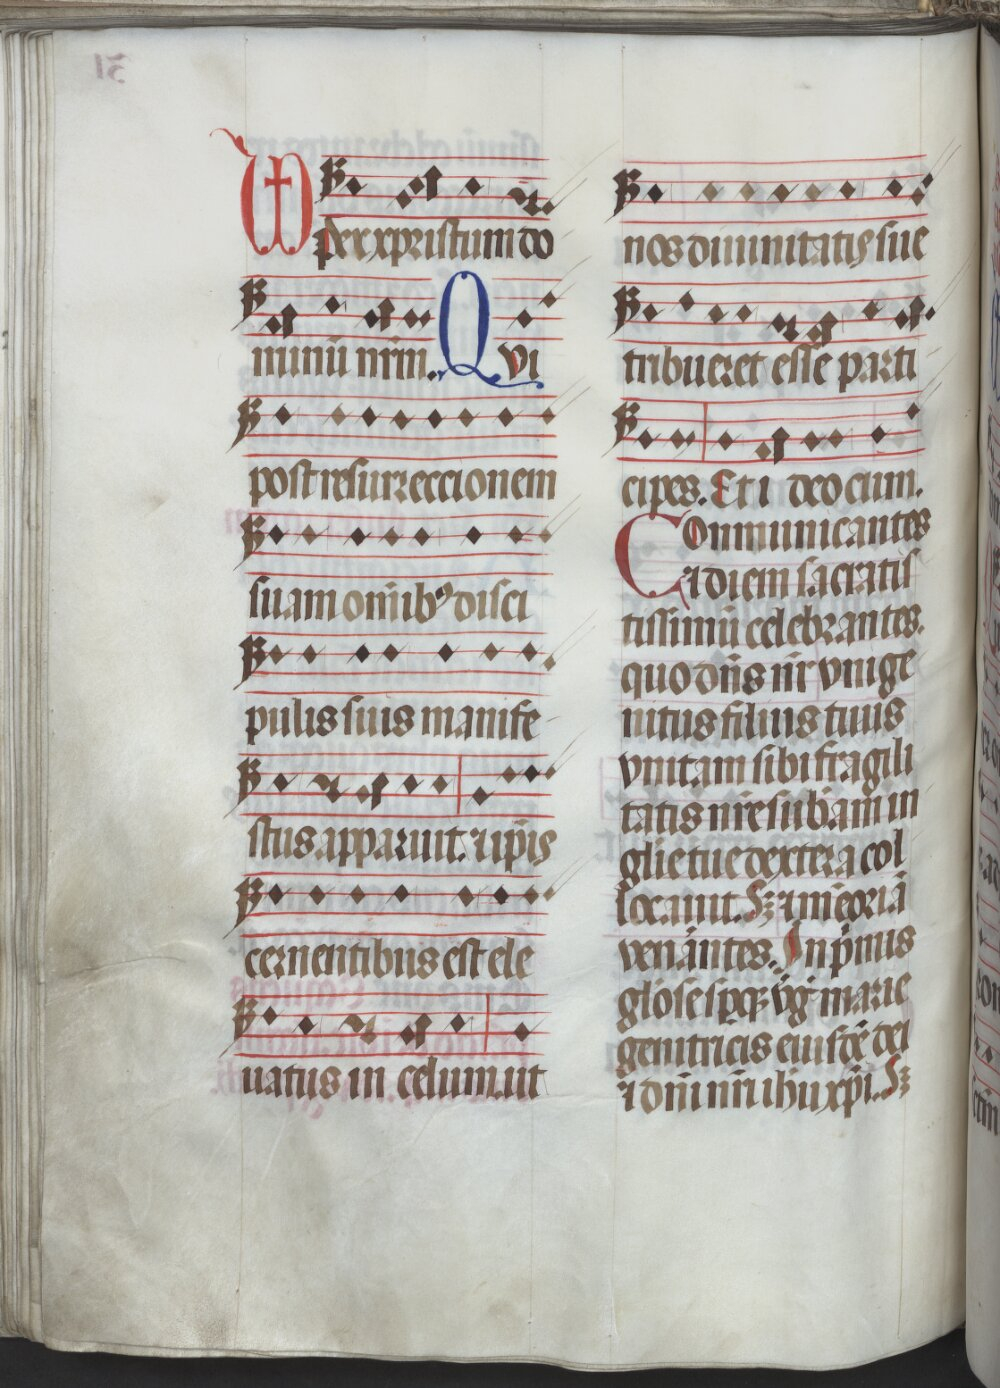 per xpristum do
minū nr̄m. Qvi
post resurreccionem
suam om̄ibꝰ disci
pulis suis manife
stus apparuit. ⁊ ip̄is
cernentibus est ele
uatus in celum. ut
nos diuinitatis sue
tribueret esse parti
cipes. Et i deo cum.
Communicantes
⁊ diem sacratis
tissimū celebrantes.
quo dn̄s nr̄ vnige
nitus filius tuus
vnitam sibi fragili
tatis nr̄e sub̄am in
gl̄ie tue dextera col
locauit. Sꝫ ⁊ mēoriā
venāntes. In p̄mis
gl̄ose sp̄qꝫ v̄g marie
genitricis eiusdē dei
⁊ dn̄i nr̄i ihū xp̄i. Sꝫ